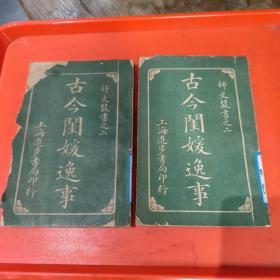 稗文叢書之二
古今閨媛逸事
上海進步書局印行
稗文叢書之二
古今閨媛逸事
上海進步書局印行